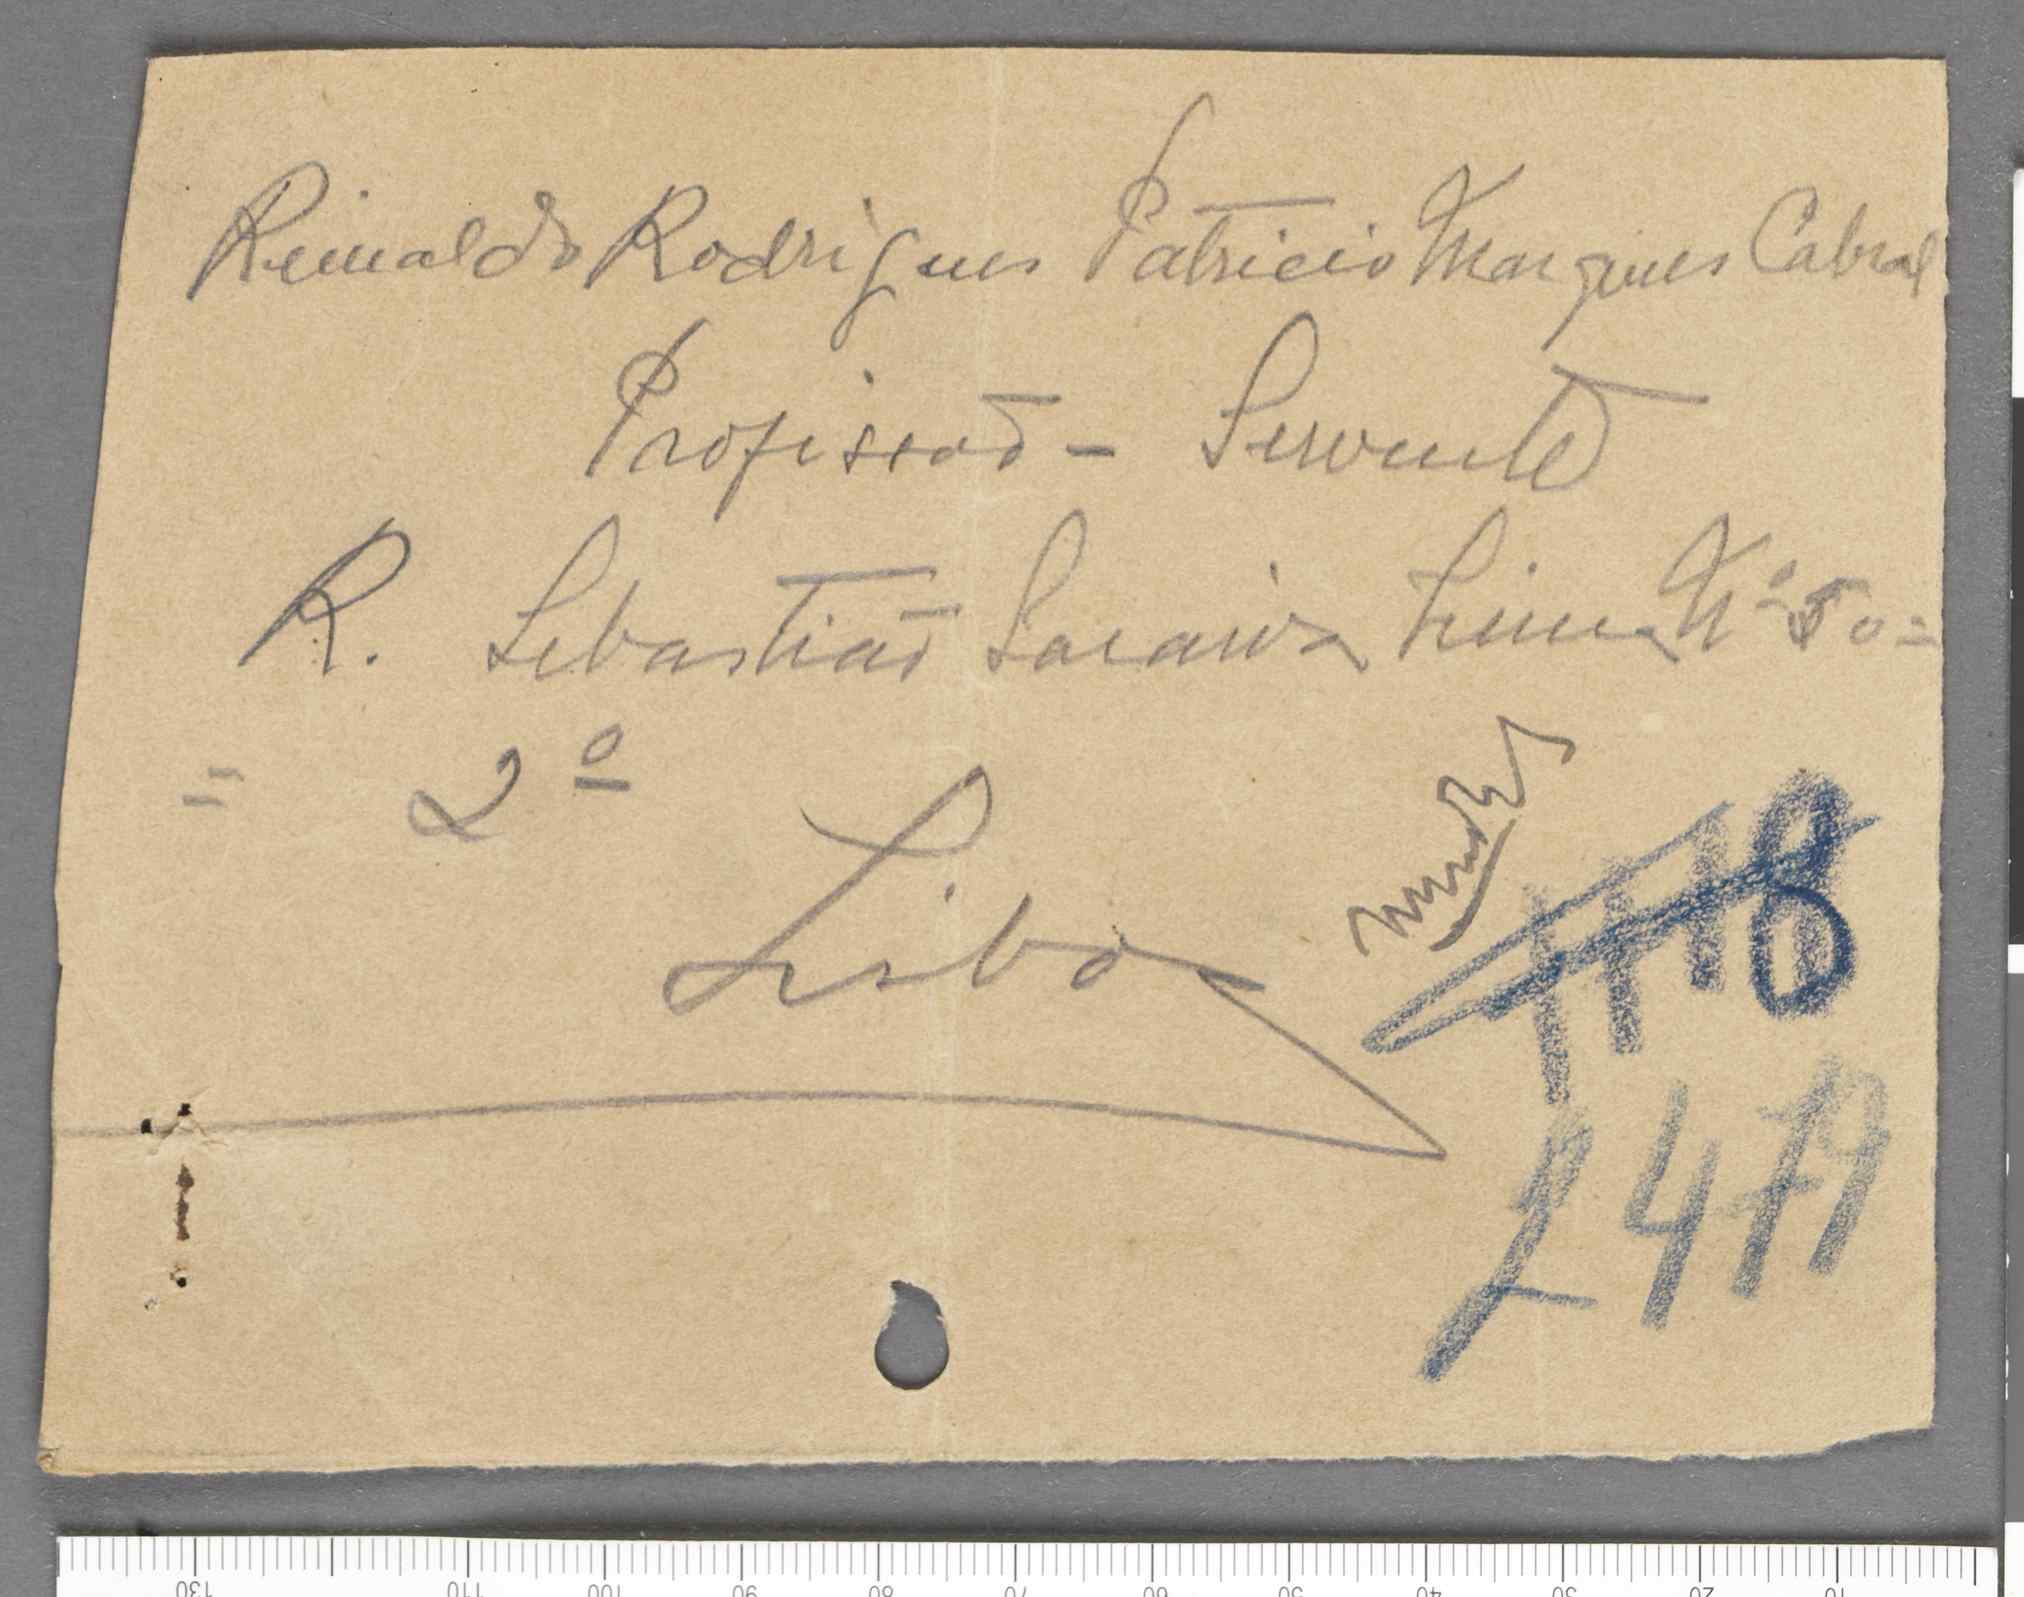 Reinaldo Rodrigues Patricio Marques Cabral
Profissaõ - Servente
R. Sebastiaõ Saraiva Lima Nº 50 =
= 2º
Lisboa
1118
1479
130 110 100 90 80 70 60 50 40 30 20 10